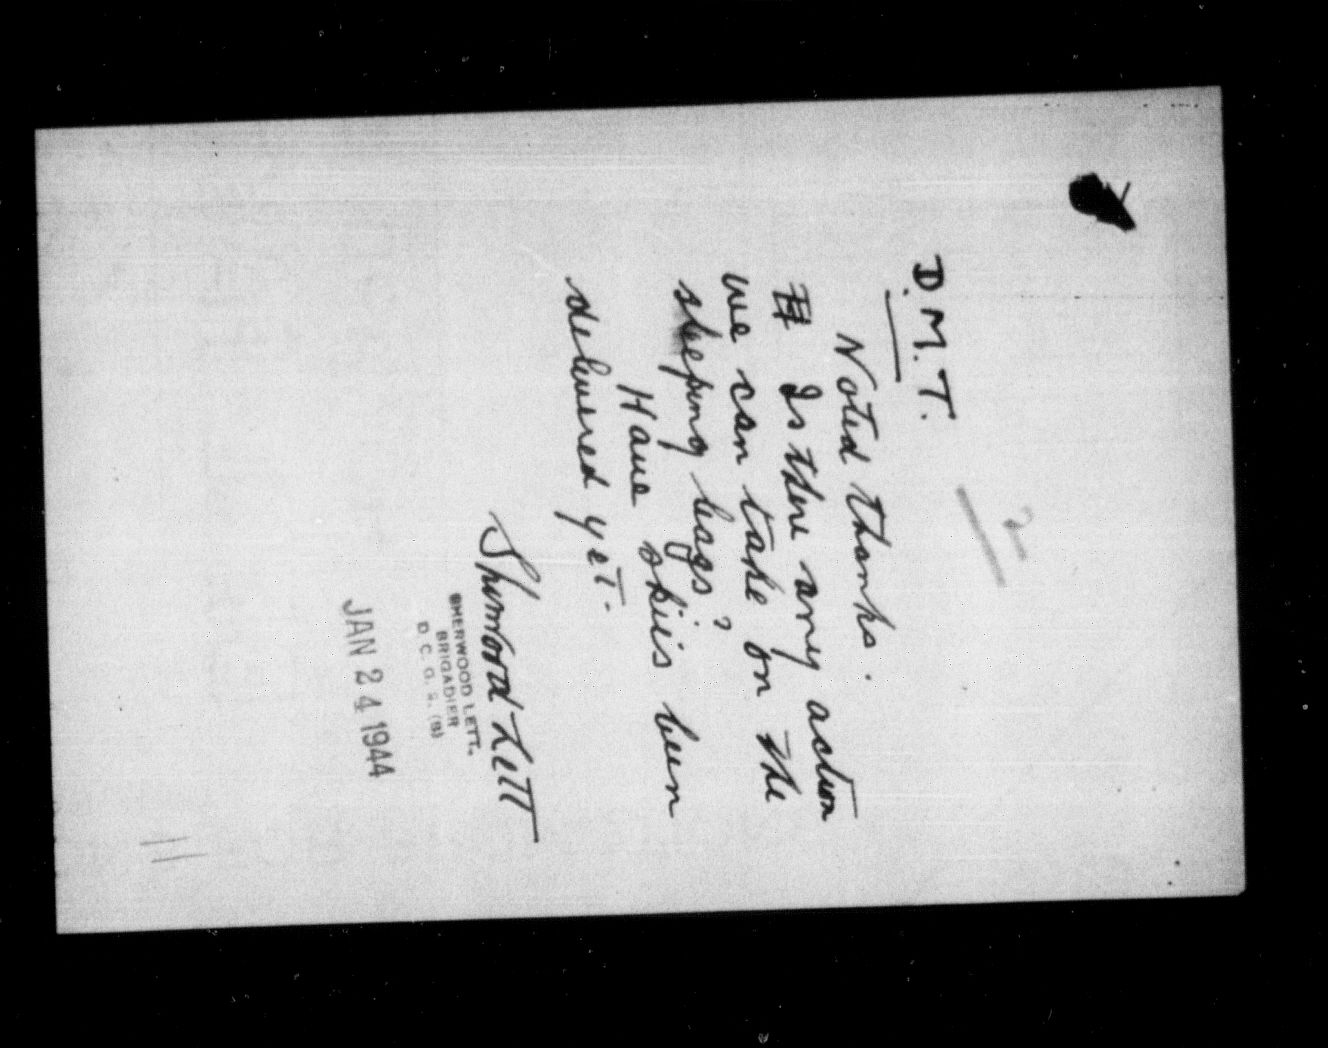 2
D.M.T.
Noted thanks.
Is there any action
we can take on the
sleeping bags?
Have skiis been
delivered yet.
Sherwood Lett
SHERWOOD LETT.
BRIGADIER
D. C. G. S. (B)
JAN 24 1944